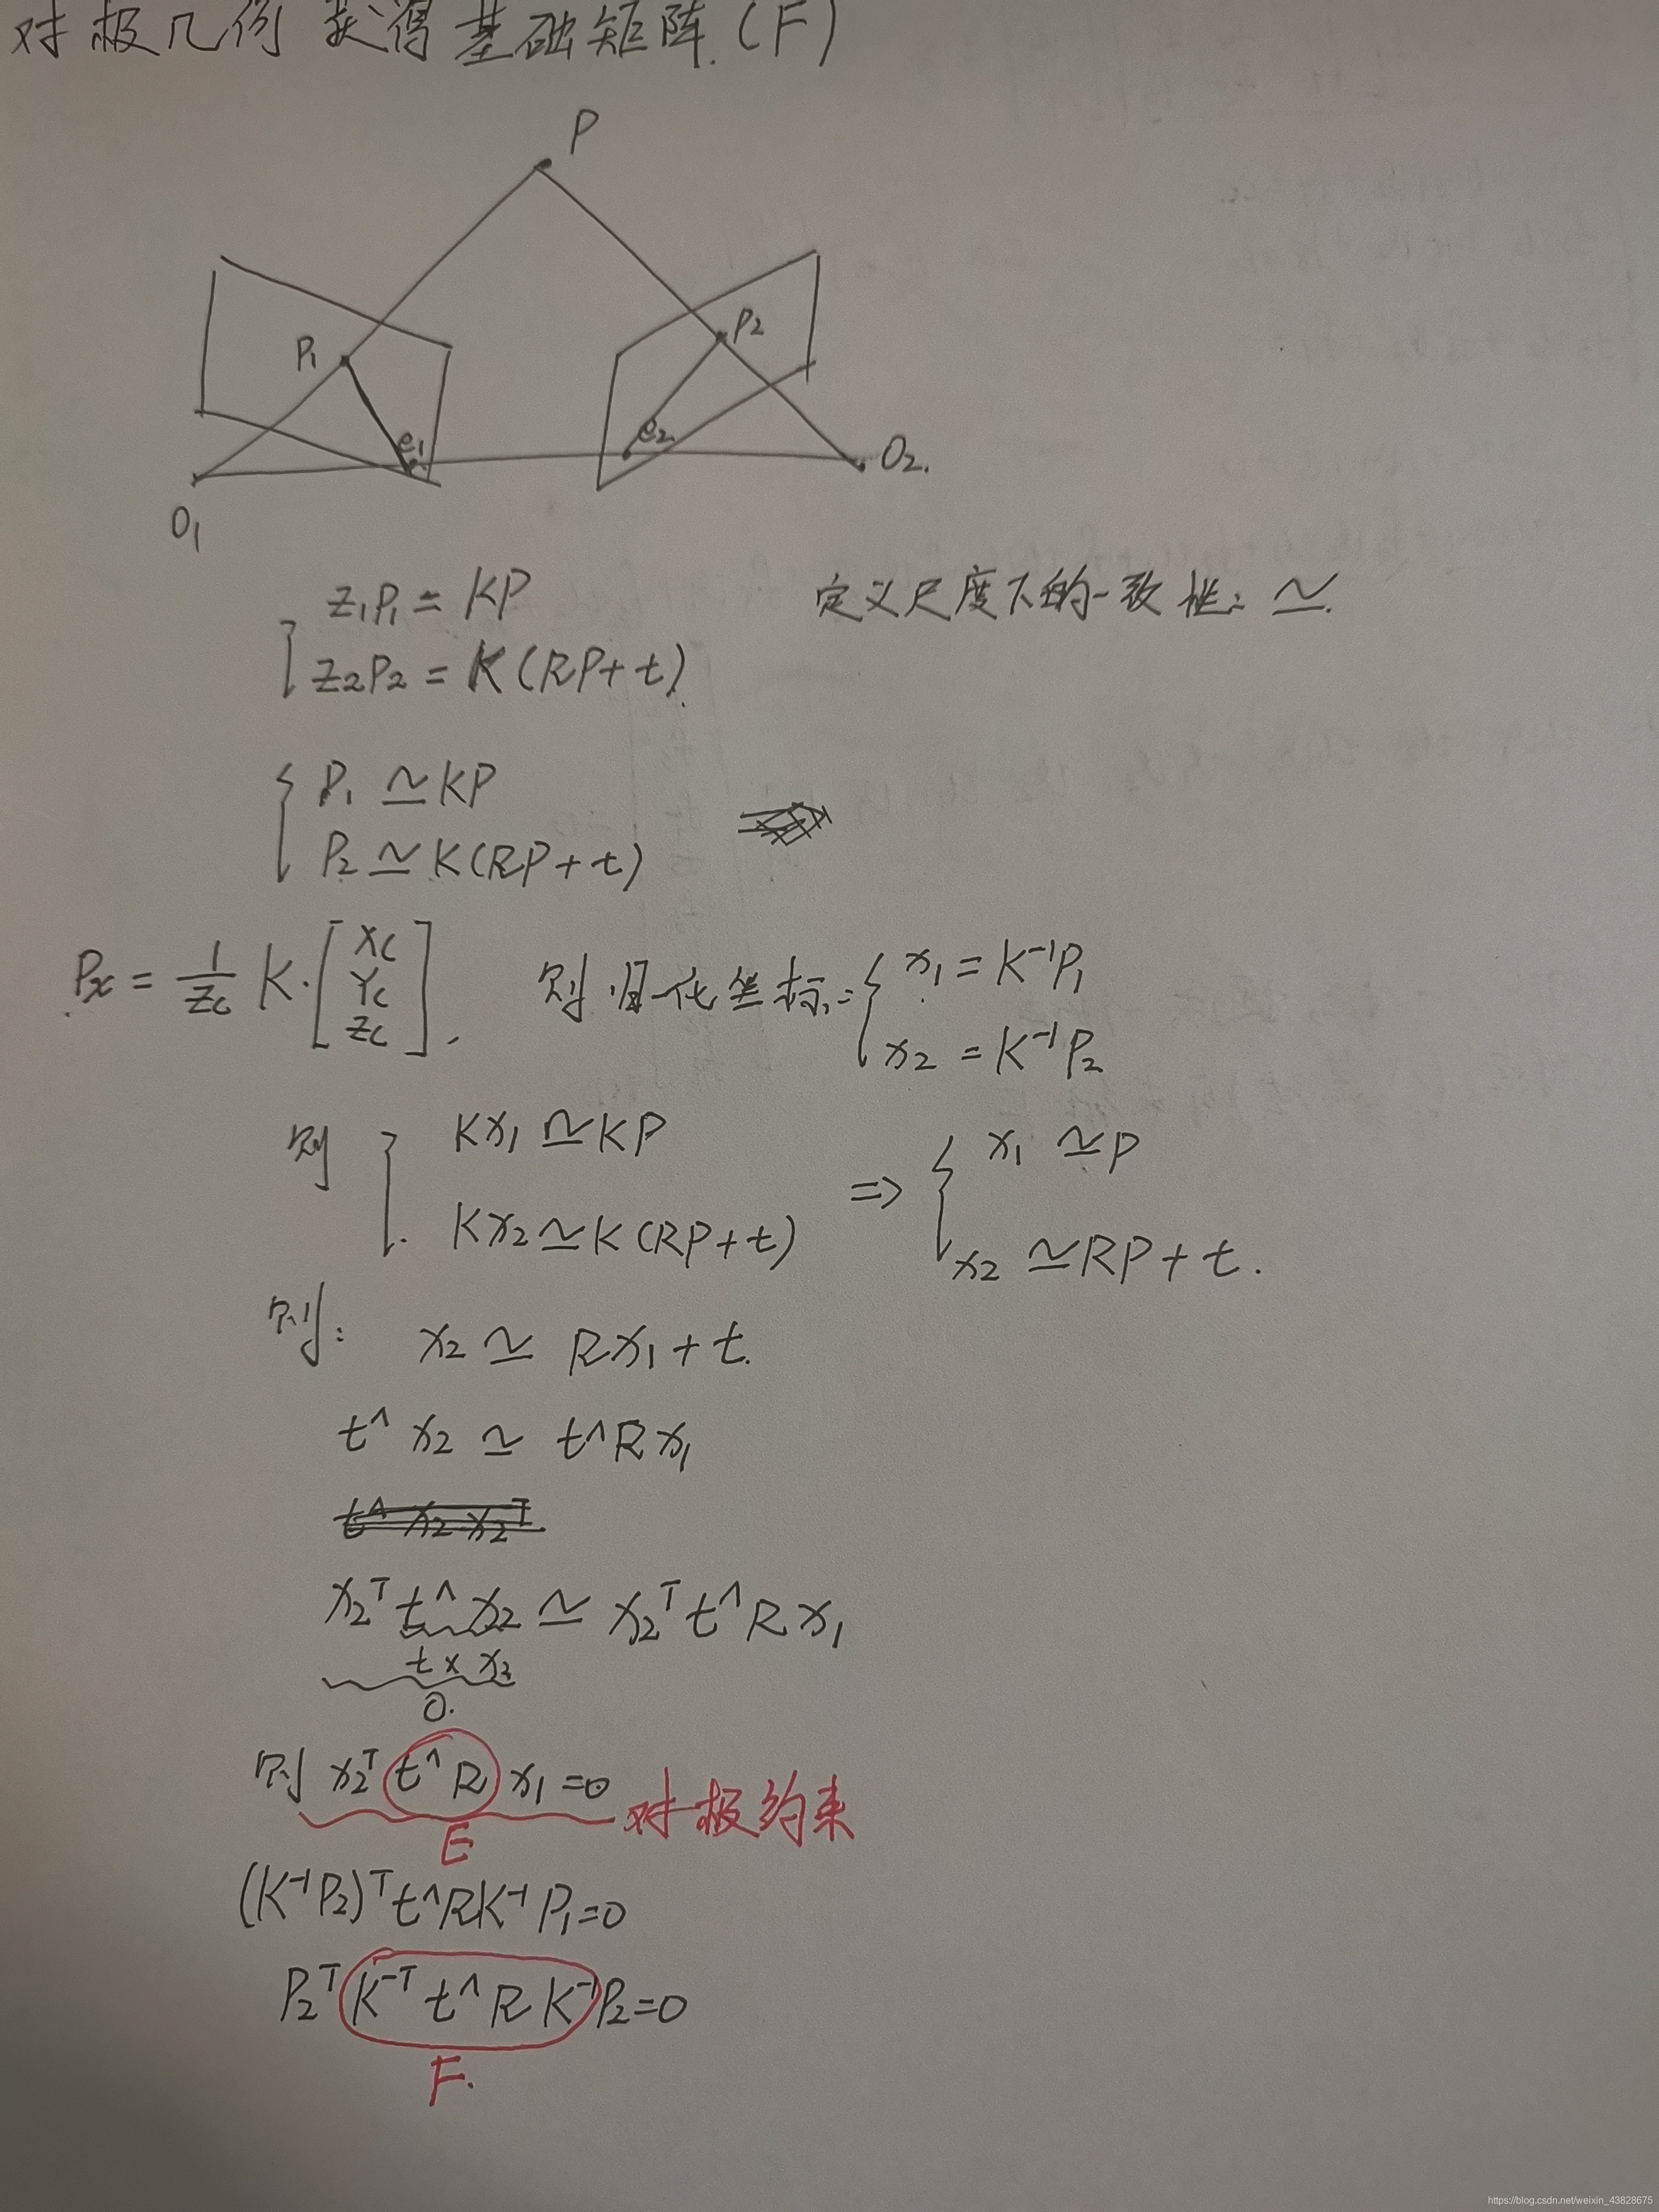 对极几何 获得基础矩阵.(F)
P
P₁
P₂
e₁
e₂
O₁
O₂.
z₁P₁ = KP
定义尺度下的一致性: ≃.
z₂P₂ = K(RP+t)
P₁ ≃ KP
P₂ ≃ K(RP+t)
Px = 1/Zc K·[Xc Yc Zc], 则归一化坐标: { x₁ = K⁻¹P₁
x₂ = K⁻¹P₂
则 { Kx₁ ≃ KP ⇒ { x₁ ≃ P
Kx₂ ≃ K(RP+t) x₂ ≃ RP+t.
则: x₂ ≃ Rx₁+t.
t^ x₂ ≃ t^Rx₁
t^ x₂ x₂ᵀ
x₂ᵀ t^ x₂ ≃ x₂ᵀ t^ R x₁
t × x₂
0.
则 x₂ᵀ t^ R x₁ = 0 对极约束
E
(K⁻¹P₂)ᵀ t^RK⁻¹ P₁ = 0
P₂ᵀ K⁻ᵀ t^ R K⁻¹ P₂ = 0
F.
https://blog.csdn.net/weixin_43828675